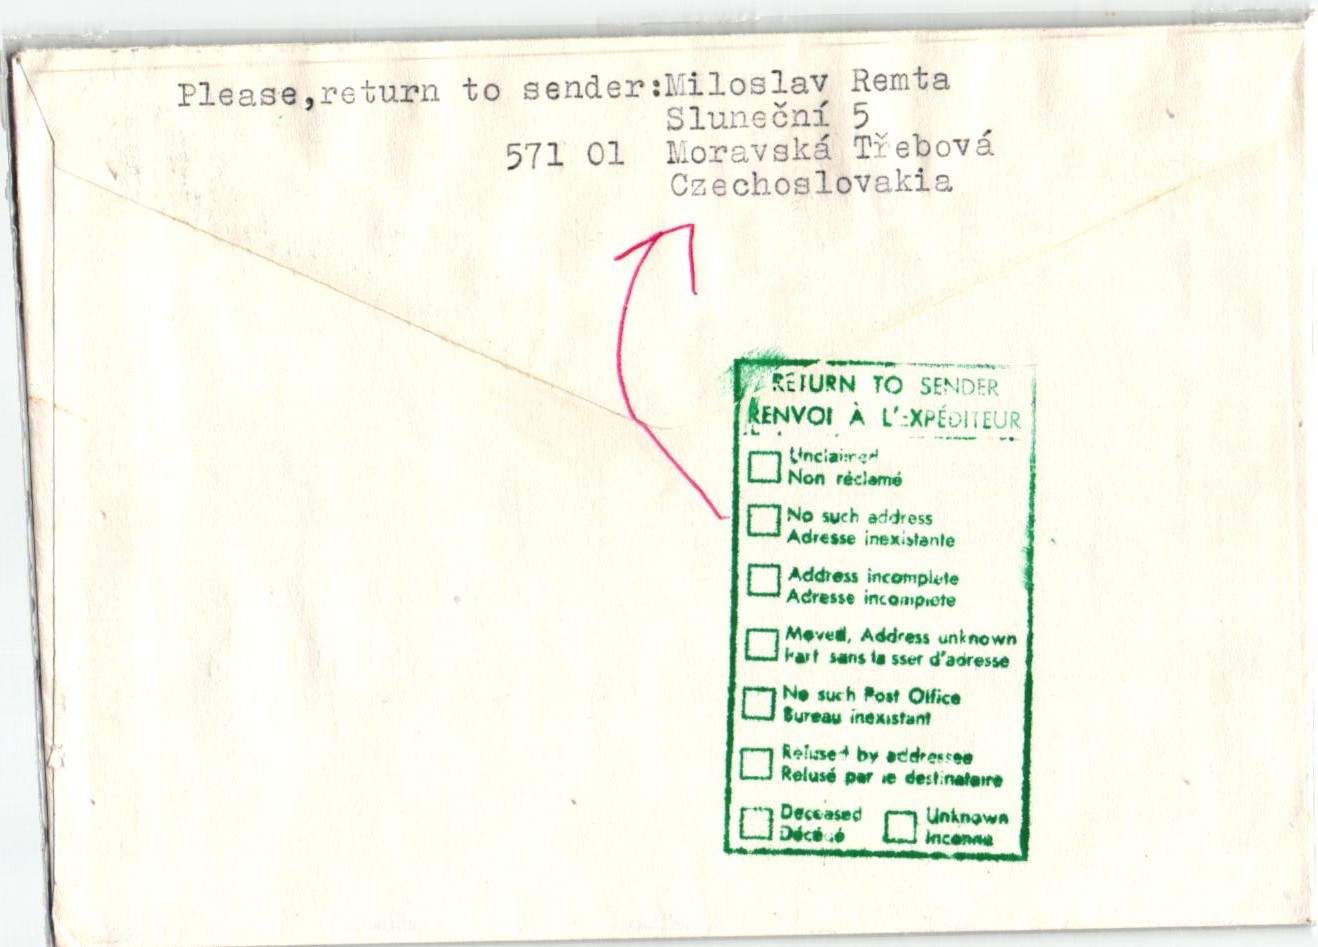 Please,return to sender:Miloslav Remta
Sluneční 5
571 01 Moravská Třebová
Czechoslovakia
RETURN TO SENDER
RENVOI À L'EXPÉDITEUR
Unclaimed
Non réclamé
No such address
Adresse inexistante
Address incomplete
Adresse incomplète
Moved, Address unknown
Part sans laisser d'adresse
No such Post Office
Bureau inexistant
Refused by addressee
Refusé par le destinataire
Deceased
Décédé
Unknown
Inconnu